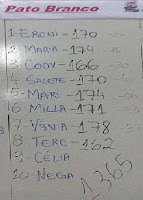 Pato Branco
1 ERONI - 170
2 MARIA - 174
3 CODY - 166
4 SALETE - 170
5 MARI - 174
6 MILLA - 171
7 VÂNIA - 178
8 TERE - 162
9 CÉLIA
10 NEGA
1.365